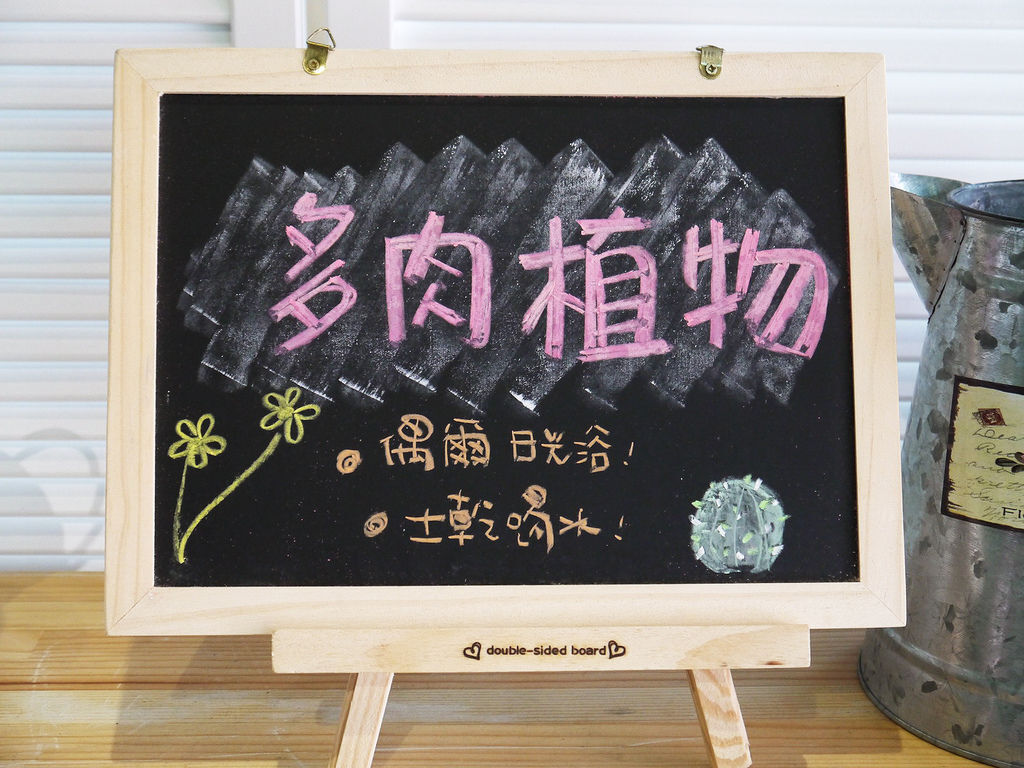 多肉植物
偶爾日光浴!
土乾喝水!
double-sided board
Dea